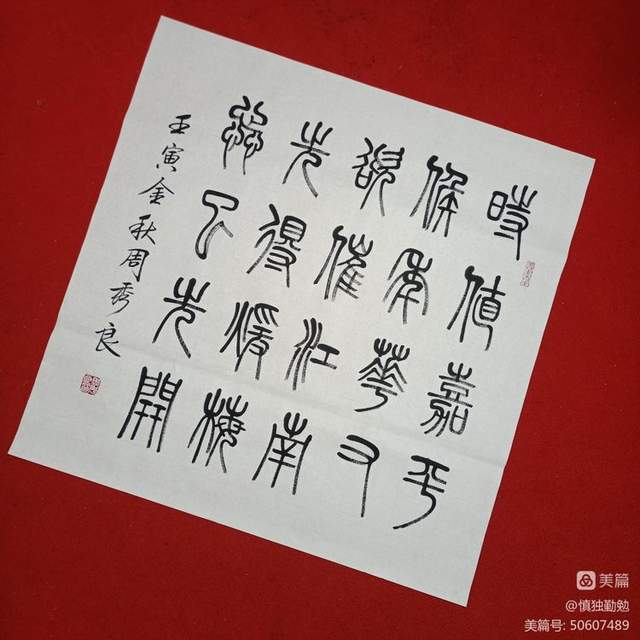 時值嘉平
候年華又
欲催江南
先得暖梅
惢已先開
壬寅金秋周秀良
美篇
@慎独勤勉
美篇号: 50607489